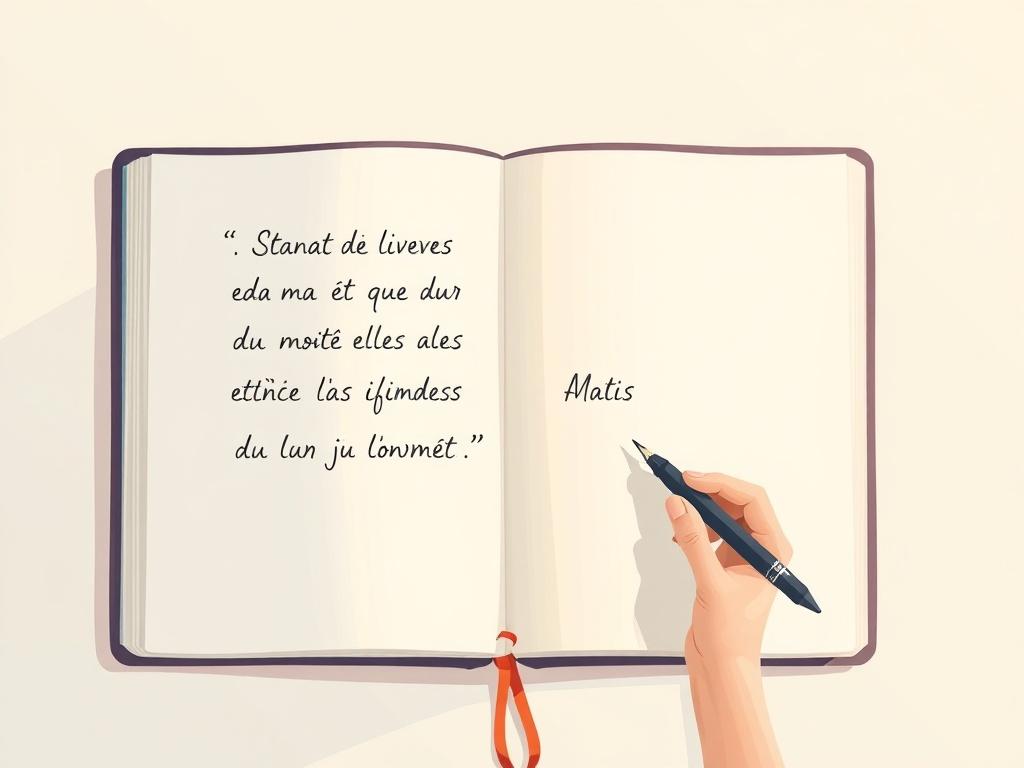 “. Stanat dė liveves
eda ma ét que dur
du moitê elles ales
l'as ifimdess
du lun ju l'owmét.”
Matis